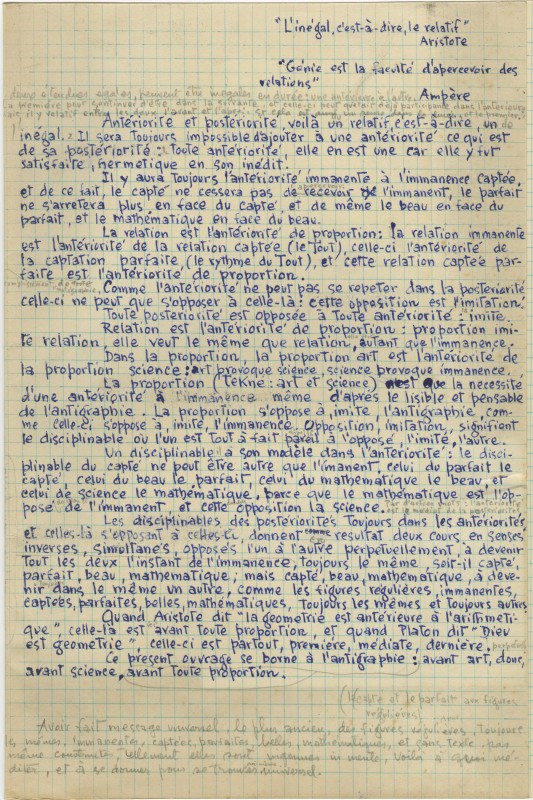 "L'inégal, c'est-à-dire, le relatif"
Aristote
"Génie est la faculté d'apercevoir des
relations"
Ampère
deux étendues égales, peuvent être inégales en durée: une antérieure à l'autre.
la première peut continuer d'être dans la suivante, et
Antériorité et postériorité, voilà un relatif, c'est-à-dire, un
inégal. Il sera Toujours impossible d'ajouter à une antériorité ce qui est
de sa postériorité. Toute antériorité, elle en est une car elle y fut
satisfaite, hermétique en son inédit.
Il y aura Toujours l'antériorité immanente à l'immanence captée,
et de ce fait, le capté ne cessera pas de recevoir l'immanent, le parfait
apercevoir
ne s'arretera plus en face du capté, et de même le beau en face du
parfait, et le mathématique en face du beau.
La relation est l'antériorité de proportion: la relation immanente
est l'antériorité de la relation captée (le Tout), celle-ci l'antériorité de
la captation parfaite (le rythme du Tout), et cette relation captée par-
faite est l'antériorité de proportion.
Comme l'antériorité ne peut pas se repeter dans la postériorité
celle-ci ne peut que s'opposer à celle-là: cette opposition est l'imitation.
Toute postériorité est opposée à Toute antériorité: imite.
Relation est l'antériorité de proportion: proportion imi-
te relation, elle veut le même que relation, autant que l'immanence.
Dans la proportion, la proportion art est l'antériorité de
la proportion science: art provoque science, science provoque immanence.
La proportion (Tekne: art et science) que la nécessité
d'une antériorité à l'immanence même d'après le lisible et pensable
de l'antigraphie. La proportion s'oppose à, imite, l'antigraphie, com-
me celle-ci s'oppose à, imite, l'immanence. Opposition, imitation, signifient
le disciplinable où l'un est Tout à fait pareil à l'opposé, l'imité, l'autre.
Un disciplinable a son modèle dans l'antériorité: le disci-
plinable du capté ne peut être autre que l'imanent, celui du parfait le
capté, celui du beau le parfait, celui du mathematique le beau, et
celui de science le mathématique, parce que le mathématique est l'op-
posé de l'immanent, et cette opposition la science.
Les disciplinables des postériorités Toujours dans les antériorités,
et celles-là s'opposant à celles-ci, donnent comme resultat deux cours, en senses
inverses, simultanés, opposés l'un à l'autre perpetuellement, à devenir
Tout les deux l'instant de l'immanence, toujours le même, soit-il capté,
parfait, beau, mathematique; mais capté, beau, mathématique, à deve-
nir dans le même un autre, comme les figures regulières, immanentes,
captées, parfaites, belles, mathématiques, Toujours les mêmes et toujours autres.
Quand Aristote dit "la géometrie est antérieure à l'arithmeti-
que", celle-là est avant toute proportion, et quand Platon dit "Dieu
est géometrie", celle-ci est partout, première, médiate, dernière.
Ce present ouvrage se borne à l'antigraphie: avant art, donc,
avant science, avant toute proportion.
(Le capté et le parfait aux figures
regulières)
Avoir fait message universel, le plus ancien, des figures regulières, toujours
les mêmes, immanentes, captées, parfaites, belles, mathématiques, et sans texte pas
même construites, tellement elles sont in mente, voilà à quoi mé-
diter, et à se donner pour se trouver universel.